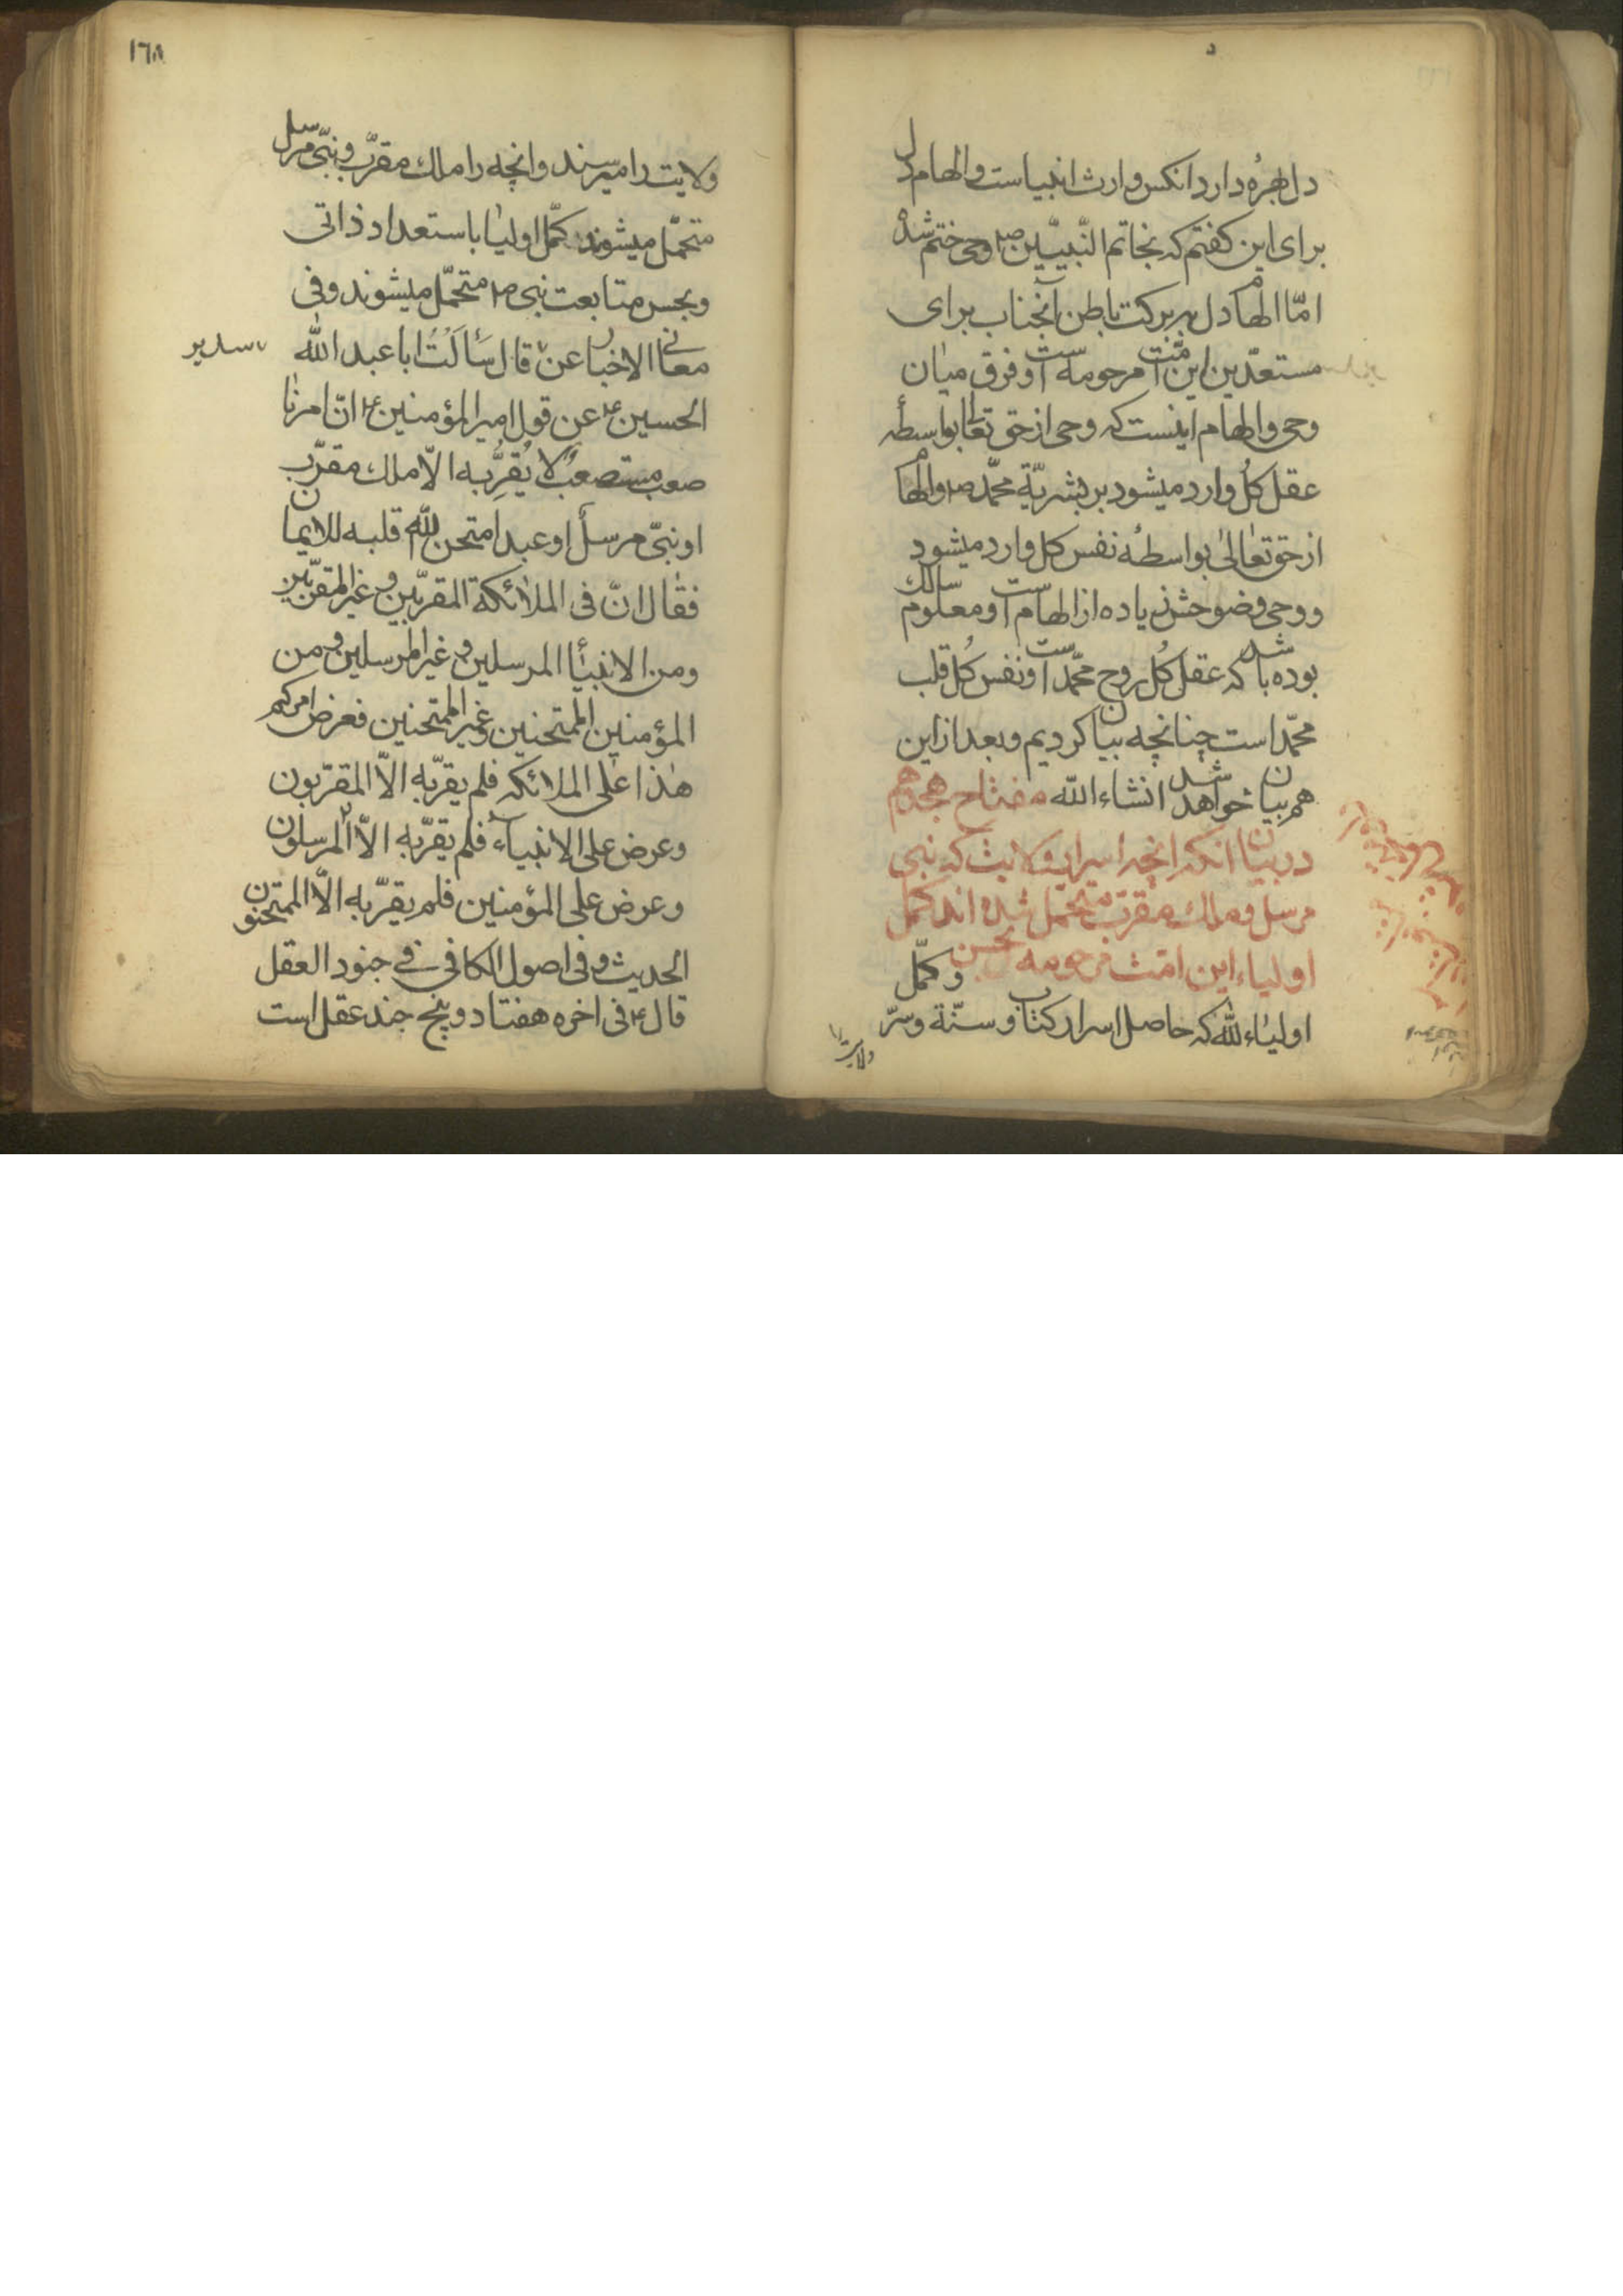 دل بهرهٔ دارد انکس وارث انبیاست والهام دل
برای این کفتم که بخاتم النّبییّین ص وحی ختم شده
امّا الهام دل ببرکت باطن آنجناب برای
مستعدّین این امّت مرحومه است و فرق میان
وحی والهام اینست که وحی از حق تعالی بواسطهٔ
عقل کل وارد میشود بر بشریّة محمّد ص والهام
از حق تعالیٰ بواسطهٔ نفس کل وارد میشود
و وحی وضوحش زیاده از الهام است و معلوم سالک
بوده باشد که عقل کُل روح محمّد است و نفس کُل قلب
محمّد است چنانچه بیان کردیم و بعد از این
هم بیان خواهد شد انشاء الله مفتاح هجدهم
در بیان انکه انچه اسرار ولایت که نبی
مرسل و ملک مقرّب متحمل شده اند کمّل
اولیاء این امّت مرحومه بحسن وکمّل
اولیاء الله که حاصل اسرار کتاب و سنّة وسرّ
ولایت
١٦٨
ولایت را میرسند وانچه را ملك مقرّب ونبّی مرسل
متحمّل میشوند کمّل اولیا باستعداد ذاتی
وبحسن متابعت نبی ص متحمّل میشوند وفی
معانی الاخبار عن قال سَأَلتُ ابا عبد الله
سدیر
الحسین ع عن قول امیر المؤمنین ع انّ امرنا
صعب مستصعب لا یُقِرُّ به الّا ملك مقرّب
او نبّی مرسل او عبد امتحن الله قلبه للایمان
فقال انّ فی الملائكة المقرّبین وغیر المقرّبین
ومن الانبیاء المرسلین وغیر المرسلین ومن
المؤمنین الممتحنین وغیر الممتحنین فعرض امرکم
هٰذا علی الملائکه فلم یقرّ به الّا المقرّبون
وعرض علی الانبیاء فلم یقرّ به الّا المرسلون
وعرض علی المؤمنین فلم یقرّ به الّا الممتحنون
الحدیث وفی اصول الکافی فی جنود العقل
قال ع فی اخره هفتاد وپنج جند عقل است